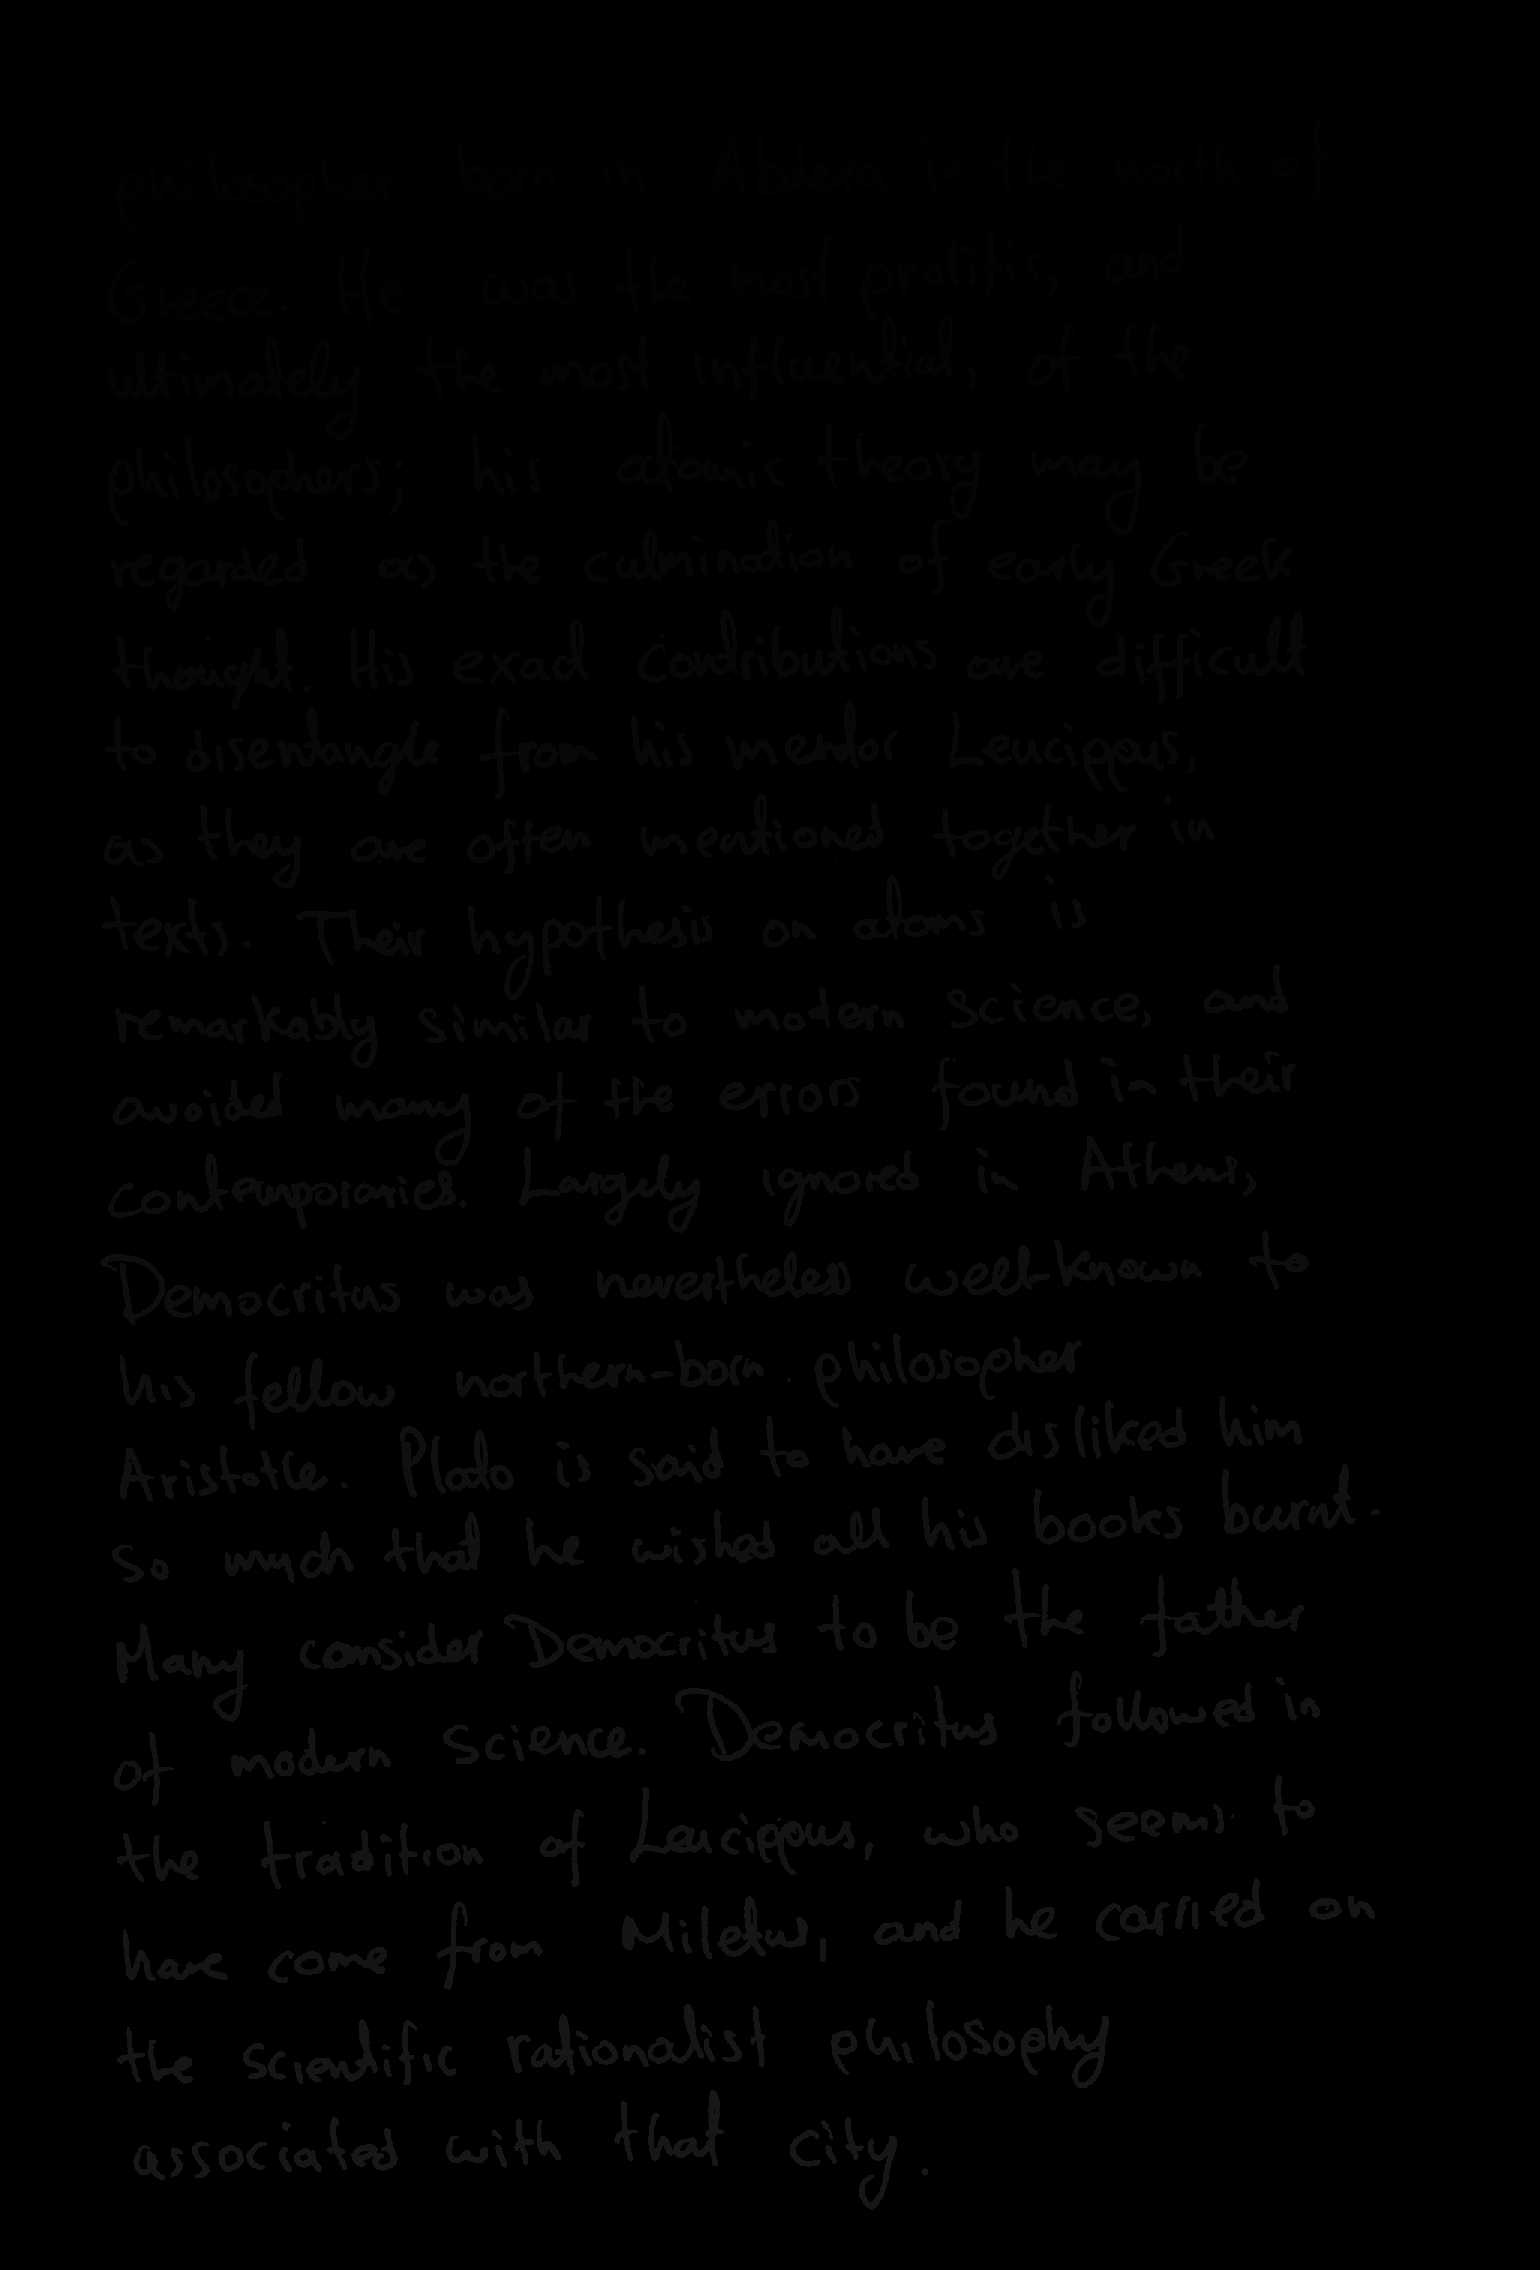 Democritus was an Ancient Greek
philosopher born in Abdera in the north of
Greece. He was the most prolific, and
ultimately the most influential, of the
philosophers; his atomic theory may be
regarded as the culmination of early Greek
thought. His exact contributions are difficult
to disentangle from his mentor Leucippus,
as they are often mentioned together in
texts. Their hypothesis on atoms is
remarkably similar to modern science, and
avoided many of the errors found in their
contemporaries. Largely ignored in Athens,
Democritus was nevertheless well-known to
his fellow northern-born philosopher
Aristotle. Plato is said to have disliked him
so much that he wished all his books burnt.
Many consider Democritus to be the father
of modern science. Democritus followed in
the tradition of Leucippus, who seems to
have come from Miletus, and he carried on
the scientific rationalist philosophy
associated with that city.